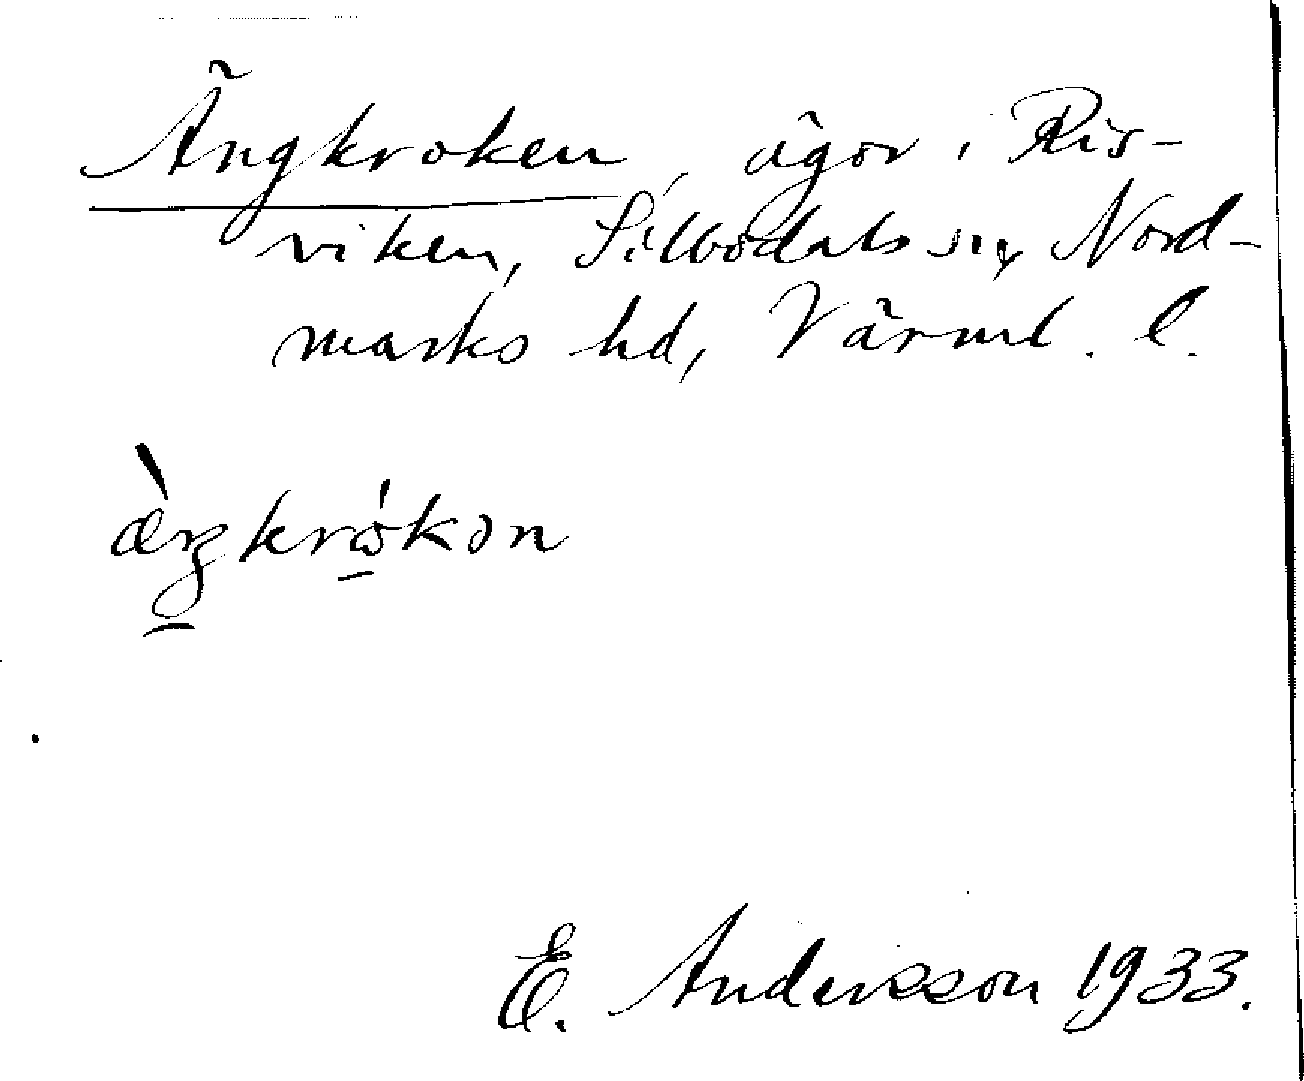 Ängkroken, ägor i Ris-
viken, Silbodals sn, Nord-
marks hd, Värml. l.
æ̀ŋkrɷ́kən
E. Andersson 1933.